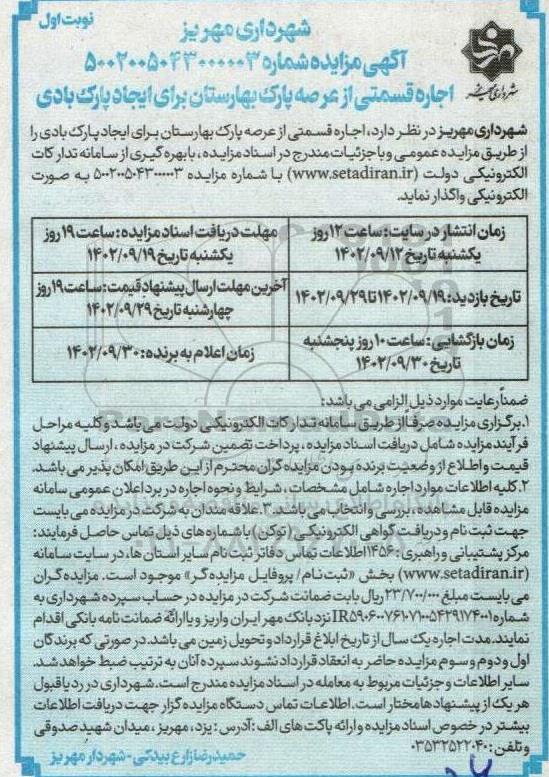 نوبت اول
شهرداری مهریز
آگهی مزایده شماره ۵۰۰۲۰۰۵۰۴۳۰۰۰۰۰۳
اجاره قسمتی از عرصه پارک بهارستان برای ایجاد پارک بادی
شهرداری مهریز
شهرداری مهریز در نظر دارد، اجاره قسمتی از عرصه پارک بهارستان برای ایجاد پارک بادی را
از طریق مزایده عمومی و با جزئیات مندرج در اسناد مزایده، با بهره گیری از سامانه تدارکات
الکترونیکی دولت (www.setadiran.ir) با شماره مزایده ۵۰۰۲۰۰۵۰۴۳۰۰۰۰۰۳ به صورت
الکترونیکی واگذار نماید.
زمان انتشار در سایت: ساعت ۱۲ روز
یکشنبه تاریخ ۱۴۰۲/۰۹/۱۲
مهلت دریافت اسناد مزایده: ساعت ۱۹ روز
یکشنبه تاریخ ۱۴۰۲/۰۹/۱۹
تاریخ بازدید: ۱۴۰۲/۰۹/۱۹ تا ۱۴۰۲/۰۹/۲۹
آخرین مهلت ارسال پیشنهاد قیمت: ساعت ۱۹ روز
چهارشنبه تاریخ ۱۴۰۲/۰۹/۲۹
زمان بازگشایی: ساعت ۱۰ روز پنجشنبه
تاریخ ۱۴۰۲/۰۹/۳۰
زمان اعلام به برنده: ۱۴۰۲/۰۹/۳۰
ضمناً رعایت موارد ذیل الزامی می باشد:
۱. برگزاری مزایده صرفا از طریق سامانه تدارکات الکترونیکی دولت می باشد و کلیه مراحل
فرآیند مزایده شامل دریافت اسناد مزایده، پرداخت تضمین شرکت در مزایده، ارسال پیشنهاد
قیمت و اطلاع از وضعیت برنده بودن مزایده گران محترم از این طریق امکان پذیر می باشد.
۲. کلیه اطلاعات موارد اجاره شامل مشخصات، شرایط و نحوه اجاره در برد اعلان عمومی سامانه
مزایده قابل مشاهده، بررسی و انتخاب می باشد. ۳. علاقه مندان به شرکت در مزایده می بایست
جهت ثبت نام و دریافت گواهی الکترونیکی (توکن) با شماره های ذیل تماس حاصل فرمایند:
مرکز پشتیبانی و راهبری: ۱۴۵۶ اطلاعات تماس دفاتر ثبت نام سایر استان ها، در سایت سامانه
(www.setadiran.ir) بخش «ثبت نام / پروفایل مزایده گر» موجود است. مزایده گران
می بایست مبلغ ۲۳/۷۰۰/۰۰۰ ریال بابت ضمانت شرکت در مزایده در حساب سپرده شهرداری به
شماره IR۵۹۰۶۰۰۷۶۱۰۷۱۰۰۵۴۲۹۱۷۴۰۰۱ نزد بانک مهر ایران واریز و یا ارائه ضمانت نامه بانکی اقدام
نمایند. مدت اجاره یک سال از تاریخ ابلاغ قرارداد و تحویل زمین می باشد. در صورتی که برندگان
اول و دوم و سوم مزایده حاضر به انعقاد قرارداد نشوند سپرده آنان به ترتیب ضبط خواهد شد.
سایر اطلاعات و جزئیات مربوط به معامله در اسناد مزایده مندرج است. شهرداری در رد یا قبول
هر یک از پیشنهادها مختار است. اطلاعات تماس دستگاه مزایده گزار جهت دریافت اطلاعات
بیشتر در خصوص اسناد مزایده و ارائه پاکت های الف: آدرس: یزد، مهریز، میدان شهید صدوقی
و تلفن: ۰۳۵۳۲۵۲۲۰۴۰
حمیدرضا زارع بیدکی - شهردار مهریز